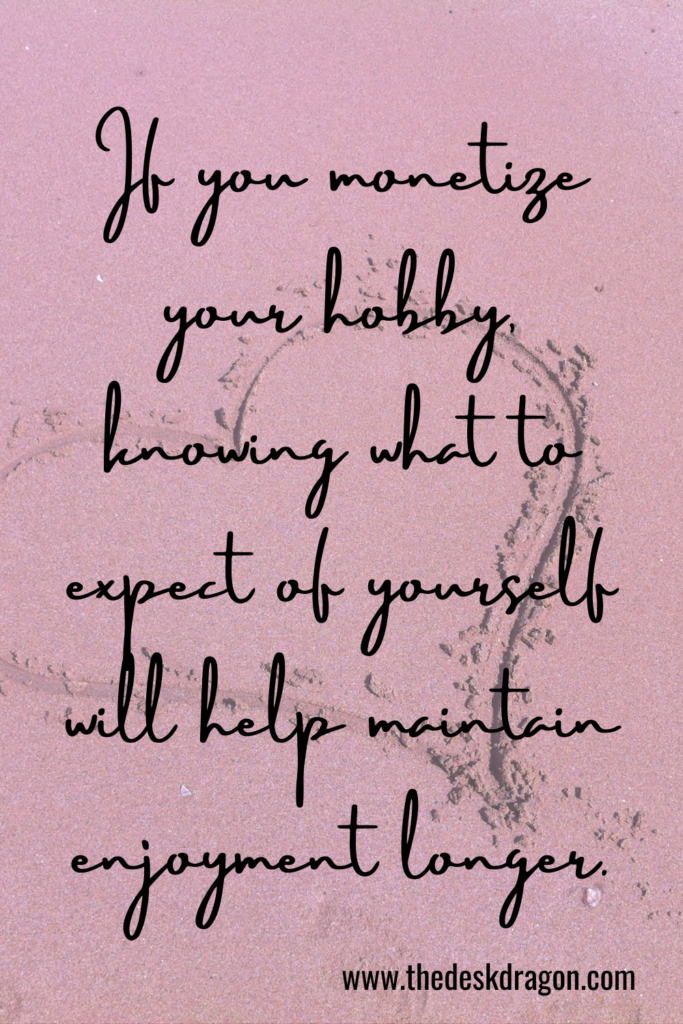 If you monetize
your hobby,
knowing what to
expect of yourself
will help maintain
enjoyment longer.
www.thedeskdragon.com